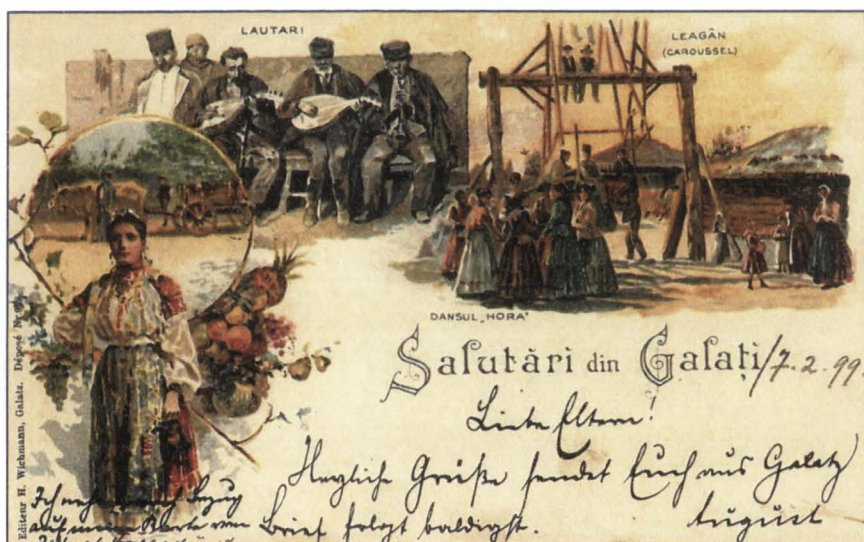 LAUTARI
LEAGÂN
(CAROUSSEL)
DANSUL „HORA"
Salutări din Galaţi/7.2.99.
Liebe Eltern!
Herzliche Grüße sendet Euch aus Galatz
August
Brief folgt baldigst.
Ich Bezug
auf meine Karte vom
Editeur H. Wichmann, Galatz. Déposé